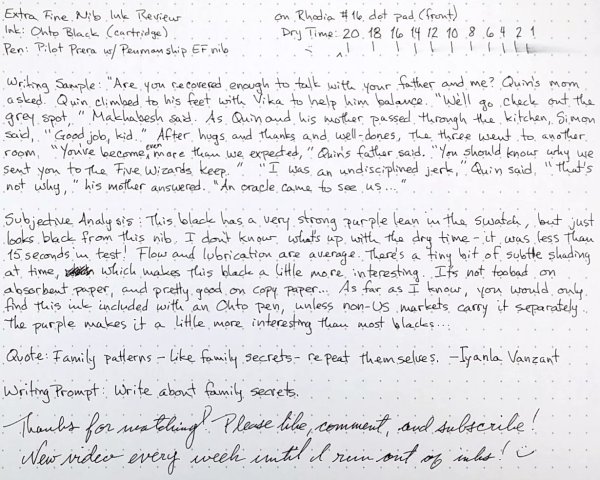 Extra Fine Nib Ink Review on Rhodia #16 dot pad (front)
Ink: Ohto Black (cartridge) Dry Time: 20 18 16 14 12 10 8 6 4 2 1
Pen: Pilot Prera w/ Penmanship EF nib
Writing Sample: "Are you recovered enough to talk with your father and me? Quin's mom
asked. Quin climbed to his feet with Vika to help him balance. "We'll go check out the
grey spot," Makhabesh said. As Quin and his mother passed through the kitchen, Simon
said, "Good job, kid." After hugs and thanks and well-dones, the three went to another
room. "You've become even more than we expected," Quin's father said. "You should know why we
sent you to the Five Wizards Keep." "I was an undisciplined jerk," Quin said. "That's
not why," his mother answered. "An oracle came to see us..."
Subjective Analysis: This black has a very strong purple lean in the swatch, but just
looks black from this nib. I don't know what's up with the dry time - it was less than
15 seconds in test! Flow and lubrication are average. There's a tiny bit of subtle shading
at time, which makes this black a little more interesting. It's not too bad on
absorbent paper, and pretty good on copy paper... As far as I know, you would only
find this ink included with an Ohto pen, unless non-US markets carry it separately.
The purple makes it a little more interesting than most blacks...
Quote: Family patterns - like family secrets - repeat themselves. -Iyanla Vanzant
Writing Prompt: Write about family secrets.
Thanks for watching! Please like, comment, and subscribe!
New video every week until I run out of inks!